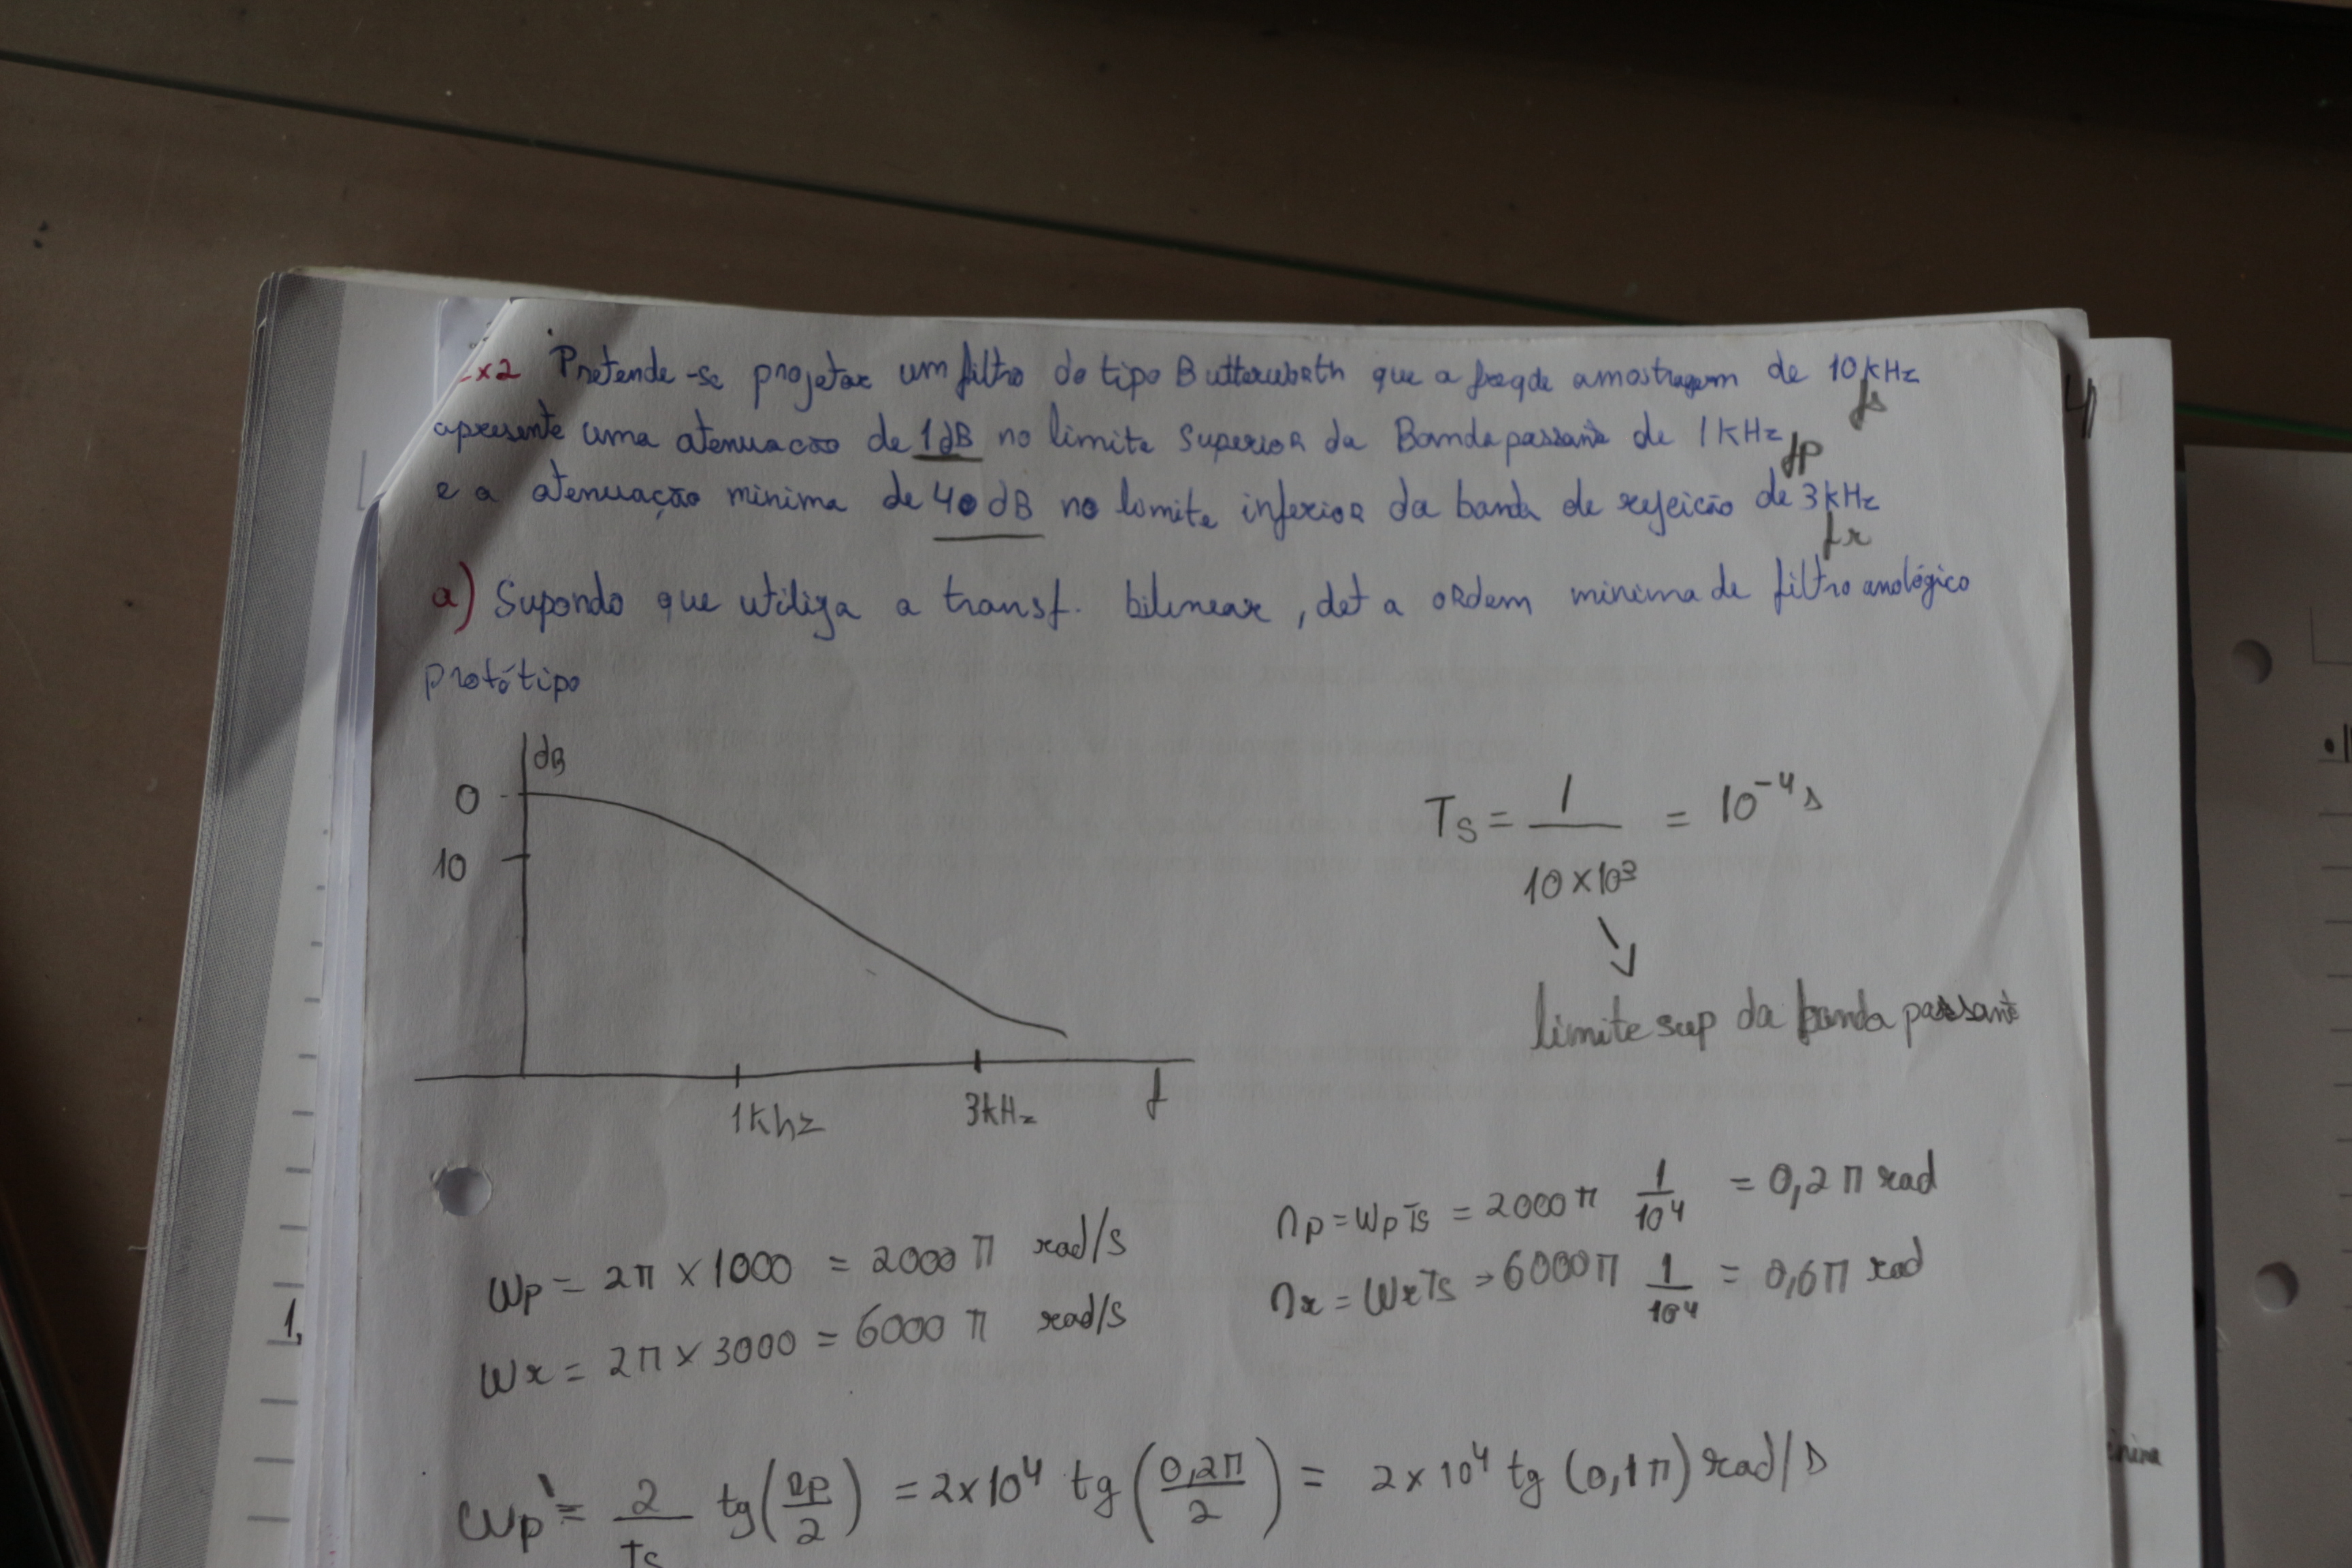 Ex2 Pretende-se projetar um filtro do tipo Butterworth que a freq de amostragem de 10kHz
fs
apresente uma atenuacão de 1dB no limite superior da Banda passante de 1kHz
fp
e a atenuação minima de 40 dB no limite inferior da banda de rejeicão de 3kHz
fr
a) Supondo que utiliza a transf. bilinear, det a ordem minima de filtro analógico
protótipo
dB
0
10
1khz
3kHz
f
Ts = 1/(10×10³) = 10⁻⁴ s
limite sup da banda passante
Ωp = ωpTs = 2000π 1/10⁴ = 0,2π rad
Ωr = ωrTs → 6000π 1/10⁴ = 0,6π rad
ωp = 2π × 1000 = 2000π rad/s
ωr = 2π × 3000 = 6000π rad/s
ωp' = 2/Ts tg(Ωp/2) = 2×10⁴ tg(0,2π/2) = 2×10⁴ tg(0,1π) rad/s
1,